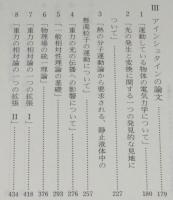 III アインシュタインの論文 179
1 「運動している物体の電気力学について」 180
2 「光の発生と変換に関する一つの発見的な見地に
ついて」 227
3 「熱の分子運動論から要求される、静止液体中の
懸濁粒子の運動について」 257
4 「重力の光の伝播への影響について」 276
5 「一般相対性理論の基礎」 293
6 「物理場の統一理論」 376
7 「重力の相対論の一つの拡張 I」 418
8 「重力の相対論の一つの拡張 II」 434